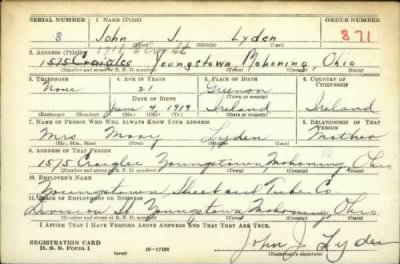 SERIAL NUMBER 1. NAME (Print) ORDER NUMBER
8 John J. Lyden 871
(First) (Middle) (Last)
2. ADDRESS (Print)
1575 Craiglee Youngstown, Mahoning, Ohio
(Number and street or R. F. D. number) (Town) (County) (State)
3. TELEPHONE 4. AGE IN YEARS 5. PLACE OF BIRTH 6. COUNTRY OF CITIZENSHIP
None 21 Ireland
DATE OF BIRTH
June 4 1919 Ireland
(Exchange) (Number) (Mo.) (Day) (Yr.) (State or country)
7. NAME OF PERSON WHO WILL ALWAYS KNOW YOUR ADDRESS 8. RELATIONSHIP OF THAT PERSON
Mrs. Mary Lyden Mother
(Mr., Mrs., Miss) (First) (Middle) (Last)
9. ADDRESS OF THAT PERSON
1575 Craiglee Youngstown Mahoning Ohio
(Number and street or R. F. D. number) (Town) (County) (State)
10. EMPLOYER'S NAME
Youngstown Sheet and Tube Co
11. PLACE OF EMPLOYMENT OR BUSINESS
Division St Youngstown Mahoning Ohio
(Number and street or R. F. D. number) (Town) (County) (State)
I AFFIRM THAT I HAVE VERIFIED ABOVE ANSWERS AND THAT THEY ARE TRUE.
REGISTRATION CARD
D. S. S. Form 1 (over) 16-17105
John J. Lyden
(Registrant's signature)